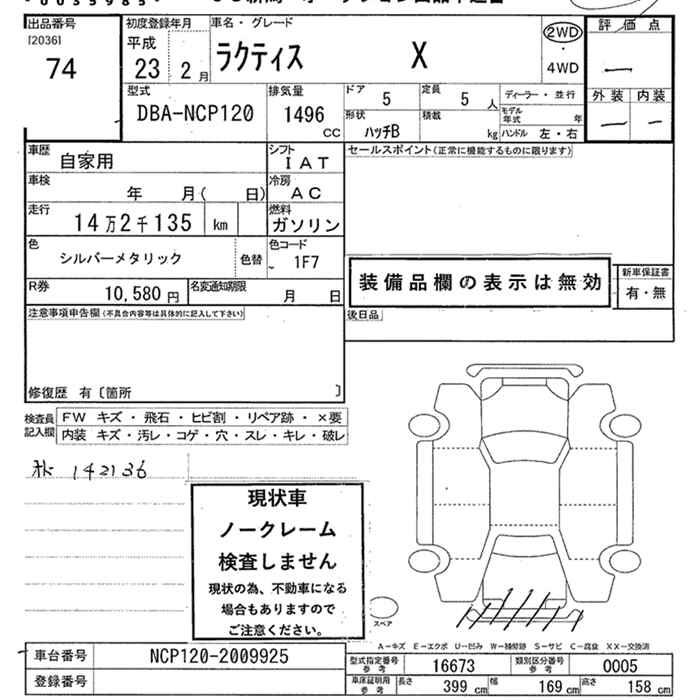 出品番号 初度登録年月 車名・グレード 評価点
[2036]
74
平成 23 2月 ラクティス X 2WD・4WD 一
型式 排気量 ドア 定員 ディーラー・並行 外装 内装
DBA-NCP120 1496 CC 5 5人 モデル年式 年 一 一
形状 ハッチB 積載 kg ハンドル 左・右
車歴 自家用 シフト IAT セールスポイント(正常に機能するものに限ります)
車検 年 月( 日) 冷房 AC
走行 14万2千135 km 燃料 ガソリン
色 シルバーメタリック 色替 色コード 1F7
装備品欄の表示は無効 新車保証書 有・無
R券 10,580円 名変通知期限 月 日
注意事項申告欄(不具合内容等は具体的に記入して下さい) 後日品
修復歴 有〔箇所 〕
検査員記入欄 FW キズ・飛石・ヒビ割・リペア跡・×要
内装 キズ・汚レ・コゲ・穴・スレ・キレ・破レ
142136
現状車
ノークレーム
検査しません
現状の為、不動車になる
場合もありますので
ご注意ください。
スペア
A-キズ E-エクボ U-凹み W-補修跡 S-サビ C-腐食 XX-交換済
車台番号 NCP120-2009925 型式指定番号参考 16673 類別区分番号参考 0005
登録番号 車庫証明用参考 長さ 399cm 幅 169cm 高さ 158cm